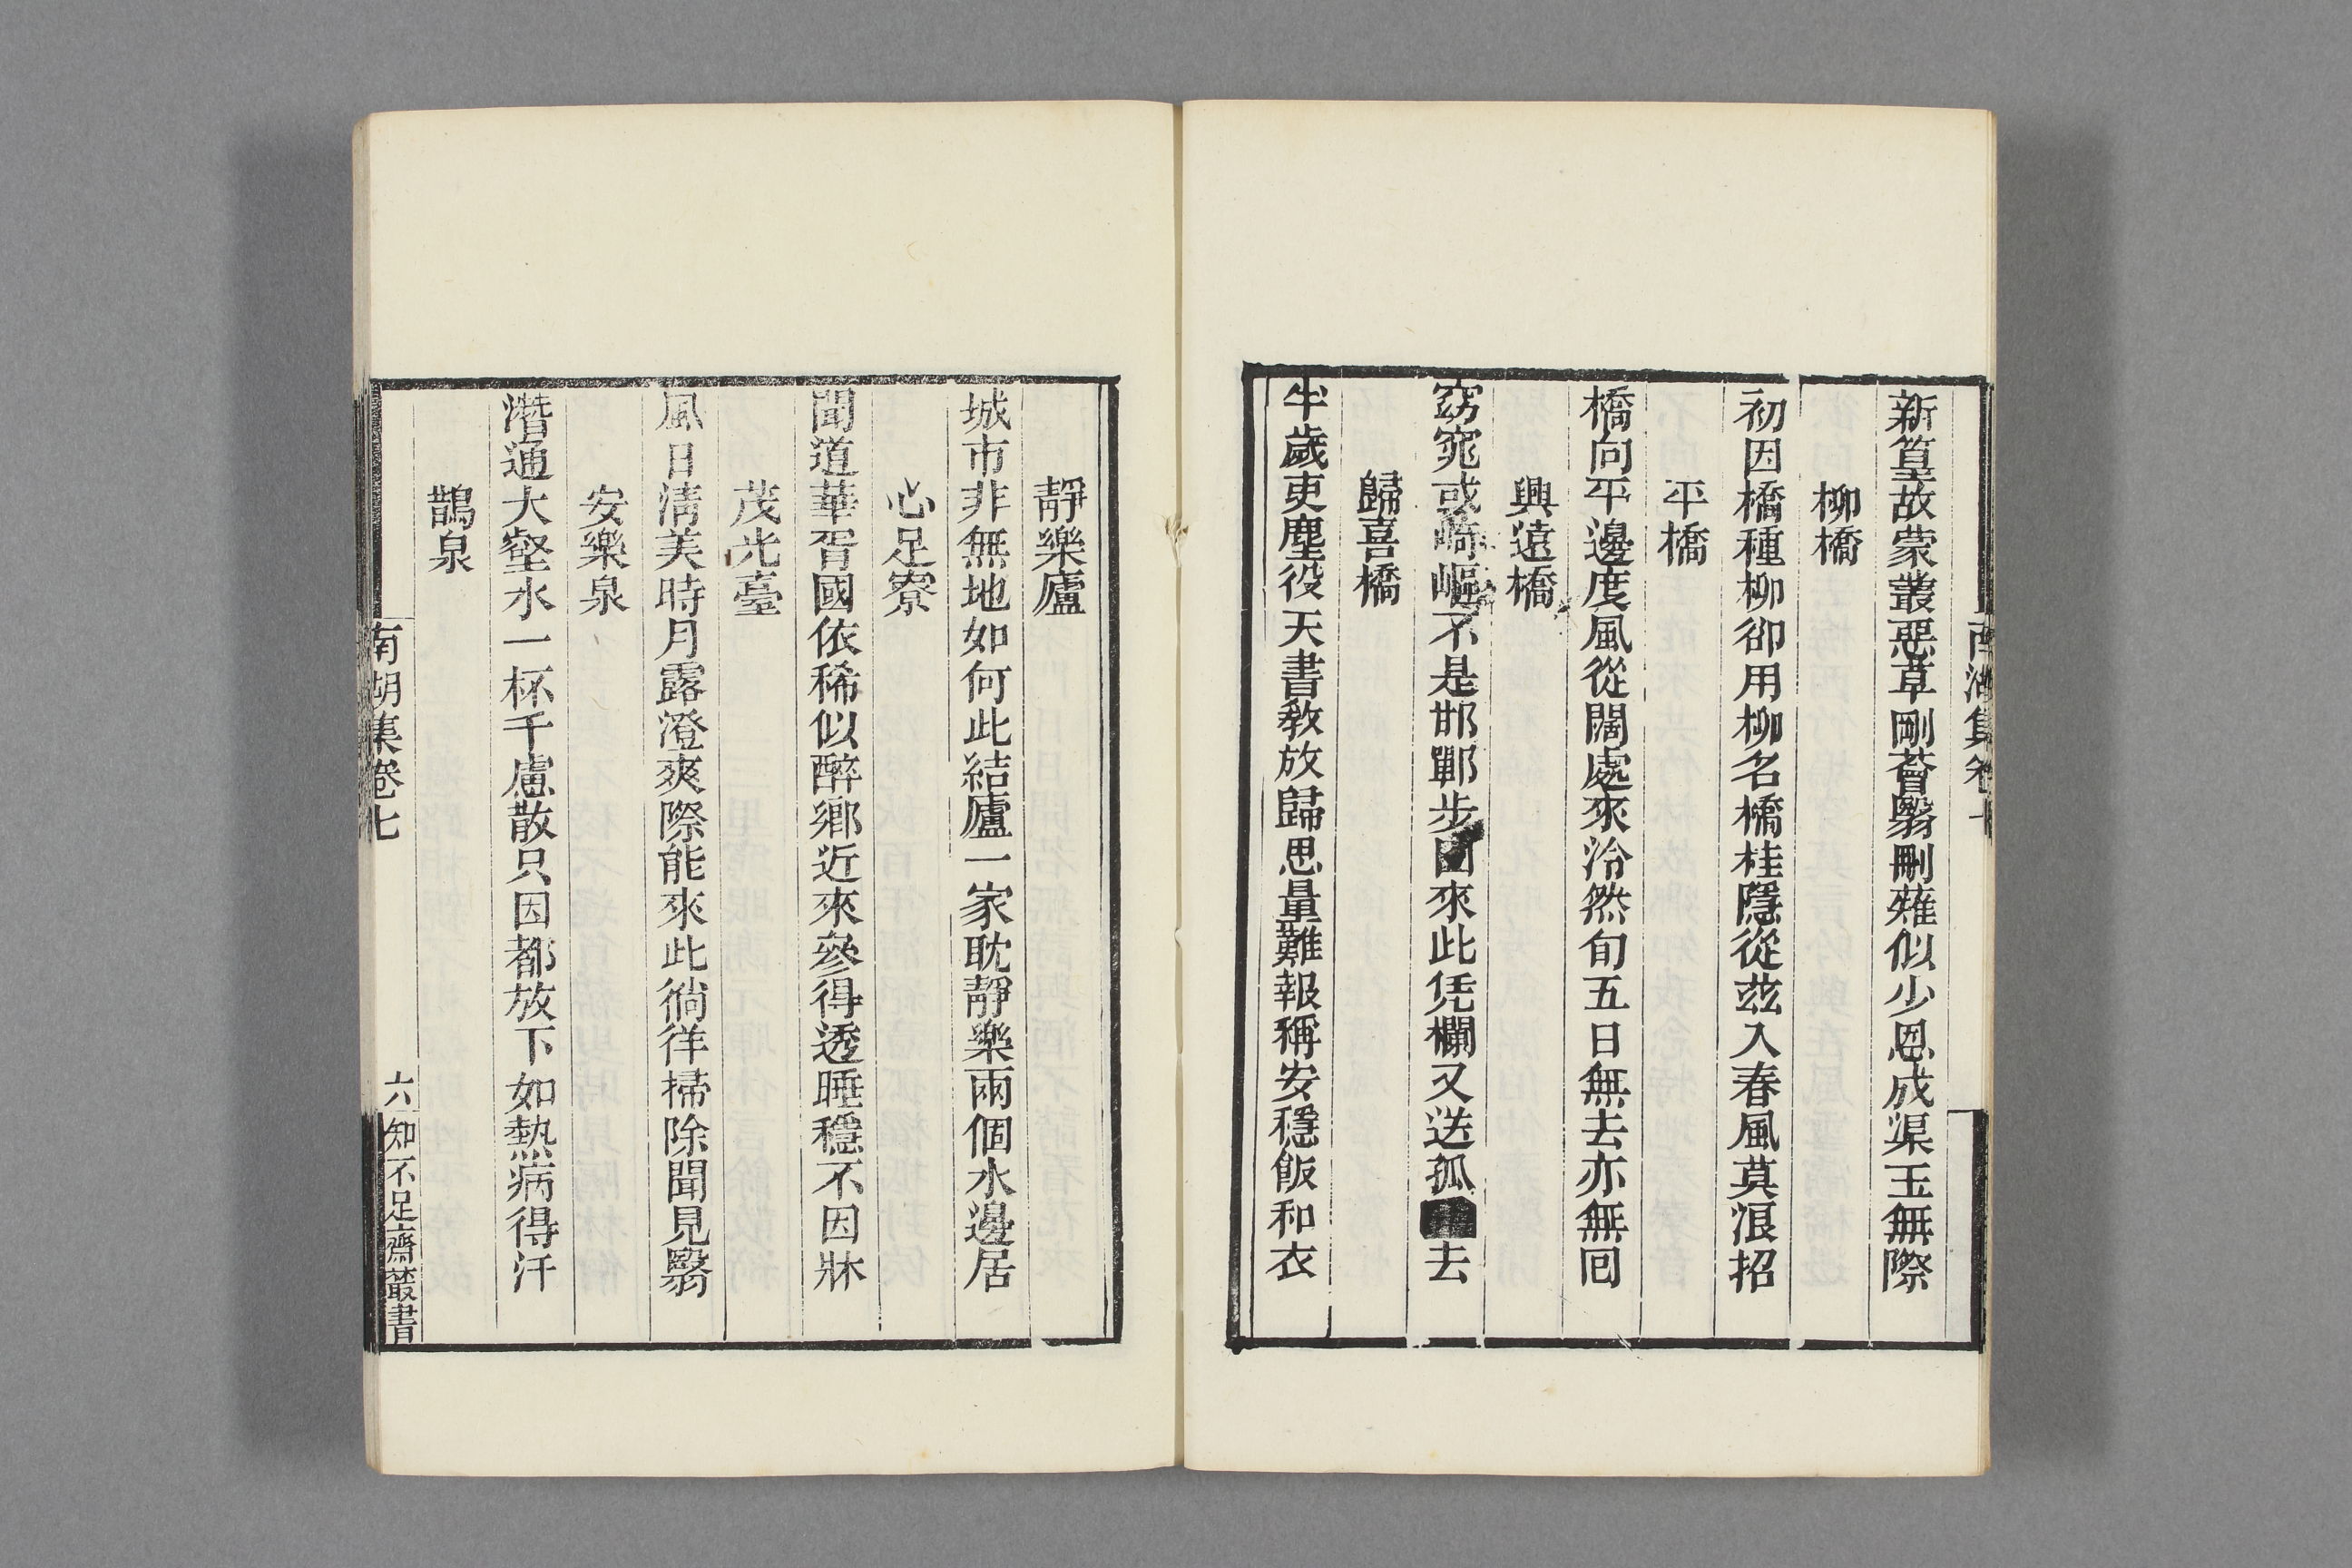 新篁故蒙叢惡草剛薈翳刪薙似少恩成渠玉無際
柳橋
初因橋種柳卻用柳名橋桂隱從茲入春風莫浪招
平橋
橋向平邊度風從闊處來泠然旬五日無去亦無回
興遠橋
窈窕或崎嶇不是邯鄲步回來此凭欄又送孤去
歸喜橋
半歲吏塵役天書敎放歸思量難報稱安穩飯和衣
靜樂廬
城市非無地如何此結廬一家耽靜樂兩個水邊居
心足寮
聞道華胥國依稀似醉鄉近來參得透睡穩不因牀
茂光臺
風日淸美時月露澄爽際能來此徜徉掃除聞見翳
安樂泉
潛通大壑水一杯千慮散只因都放下如熱病得汗
鵲泉
南湖集卷七
六
知不足齋叢書